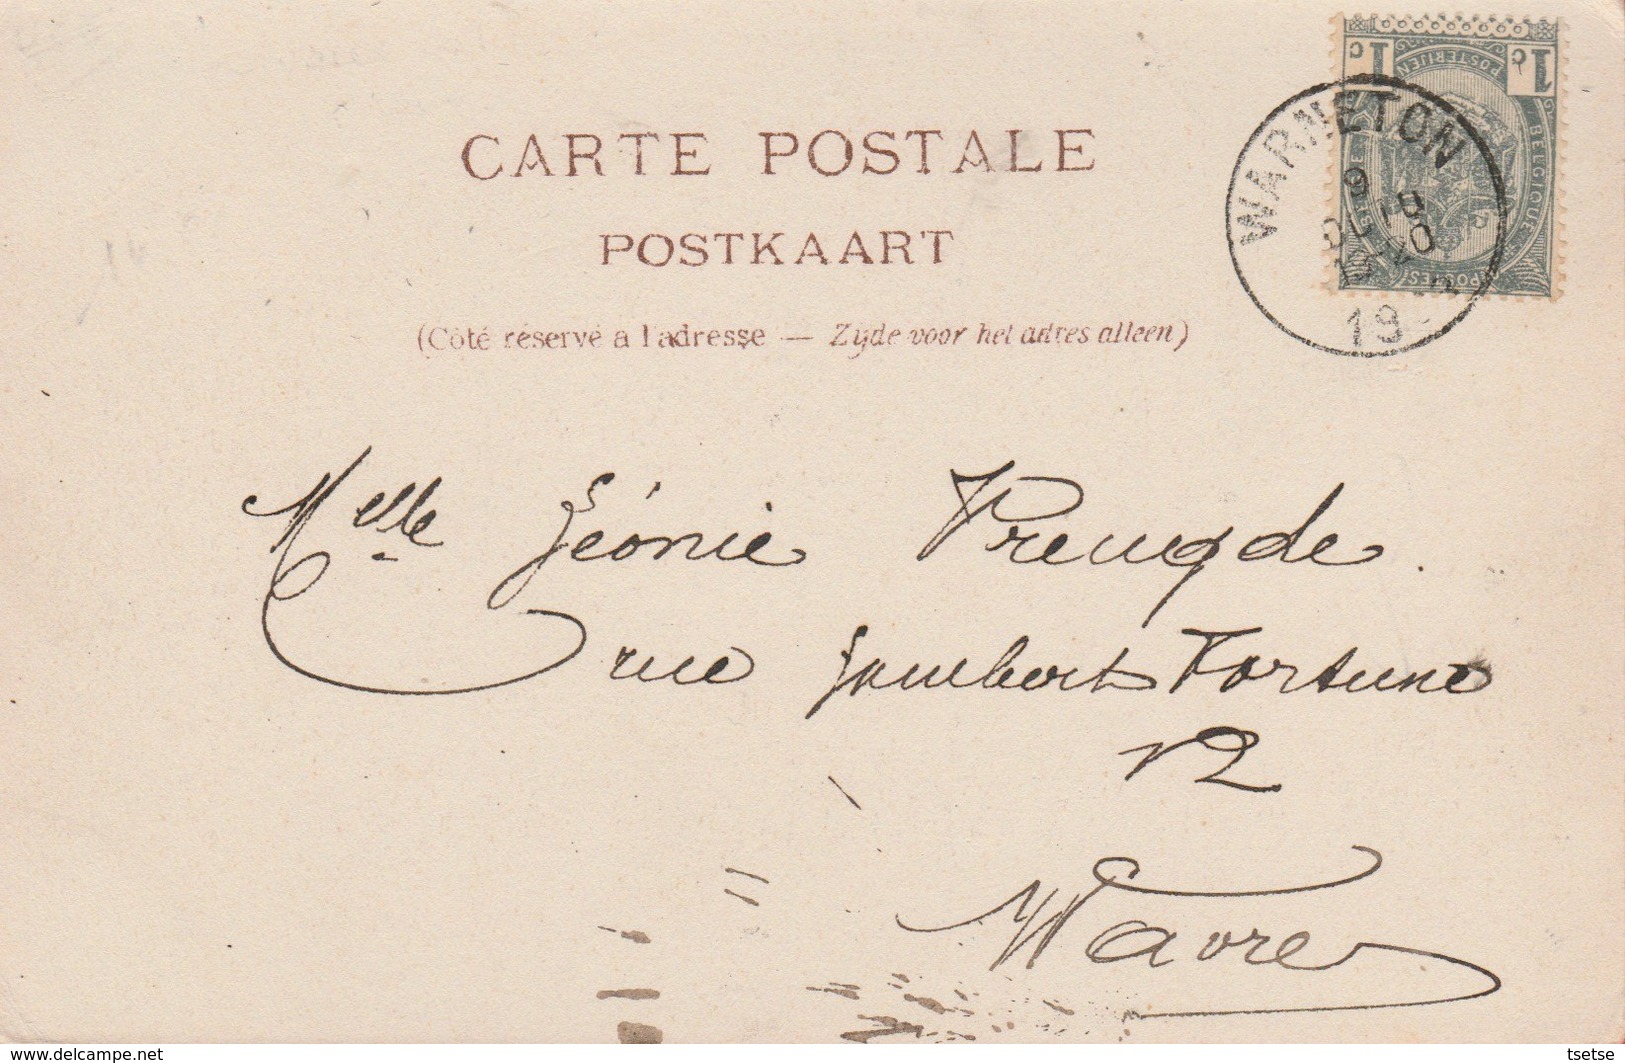 CARTE POSTALE
POSTKAART
(Côté réservé à l'adresse — Zijde voor het adres alleen)
1c 1c
POSTERIJEN
BELGIQUE
POSTES
WARNETON
19
Melle Léonie
rue Joubert Fortune
12
Wavre
delcampe.net
tsetse